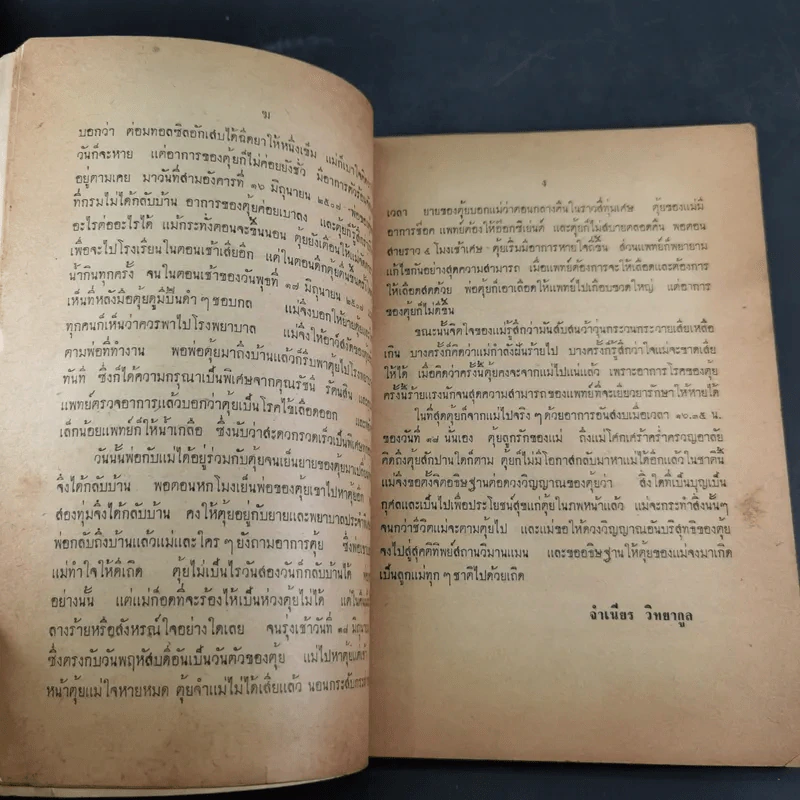 ฆ
บอกว่า ต่อมทอลซิลอักเสบได้ฉีดยาให้หนึ่งเข็ม แม่ก็เบาใจ
วันก็จะหาย แต่อาการของตุ้ยก็ไม่ค่อยยังชั่ว มีอาการตัวร้อน
อยู่ตามเคย มาวันที่สามอังคารที่ ๑๖ มิถุนายน ๒๕๐๗
ที่กรมไม่ได้กลับบ้าน อาการของตุ้ยค่อยเบาลง และตุ้ยก็รู้สึก
อะไรต่ออะไรได้ แม้กระทั่งตอนจะขึ้นนอน ตุ้ยยังเตือนให้แม่
เพื่อจะไปโรงเรียนในตอนเช้าเสียอีก แต่ในตอนดึกตุ้ยตื่นขึ้น
น้ำกินทุกครั้ง จนในตอนเช้าของวันพุธที่ ๑๗ มิถุนายน ๒๕๐๗
เห็นที่หลังมือตุ้ยดูมีปื้นดำๆชอบกล แม่จึงบอกให้ยายตุ้ย
ทุกคนก็เห็นว่าควรพาไปโรงพยาบาล แม่จึงให้อาว์สงัด
ตามพ่อที่ทำงาน พอพ่อตุ้ยมาถึงบ้านแล้วก็รีบพาตุ้ยไปโรงพยาบาล
ทันที ซึ่งก็ได้ความกรุณาเป็นพิเศษจากคุณรัชนี รัตนสิน และ
แพทย์ตรวจอาการแล้วบอกว่าตุ้ยเป็นโรคไข้เลือดออก
เล็กน้อยแพทย์ก็ให้น้ำเกลือ ซึ่งนับว่าสะดวกรวดเร็วเป็นพิเศษ
วันนั้นพ่อกับแม่ได้อยู่ร่วมกับตุ้ยจนเย็นยายของตุ้ยมา
จึงได้กลับบ้าน พอตอนหกโมงเย็นพ่อของตุ้ยเขาไปหาตุ้ยอีก
สองทุ่มจึงได้กลับบ้าน คงให้ตุ้ยอยู่กับยายและพยาบาลประจำ
พ่อกลับถึงบ้านแล้วแม่และใครๆยังถามอาการตุ้ย ซึ่งพ่อ
แม่ทำใจให้ดีเถิด ตุ้ยไม่เป็นไรวันสองวันก็กลับบ้านได้
อย่างนั้น แต่แม่ก็อดที่จะร้องให้เป็นห่วงตุ้ยไม่ได้ แต่ใน
ลางร้ายหรือสังหรณ์ใจอย่างใดเลย จนรุ่งเช้าวันที่ ๑๘ มิถุนายน
ซึ่งตรงกับวันพฤหัสบดีอันเป็นวันตัวของตุ้ย แม่ไปหาตุ้ยแต่เช้า
หน้าตุ้ยแม่ใจหายหมด ตุ้ยจำแม่ไม่ได้เสียแล้ว นอนกระสับกระส่าย
ง
เวลา ยายของตุ้ยบอกแม่ว่าตอนกลางคืนในราวสี่ทุ่มเศษ ตุ้ยของแม่มี
อาการช็อค แพทย์ต้องให้อ๊อกซิเย่นต์ และตุ้ยก็ไม่สบายตลอดคืน พอตอน
สายราว ๙ โมงเช้าเศษ ตุ้ยเริ่มมีอาการหายใจถี่ขึ้น ส่วนแพทย์ก็พยายาม
แก้ไขกันอย่างสุดความสามารถ เมื่อแพทย์ต้องการจะให้เลือดและต้องการ
ให้เลือดสดด้วย พ่อตุ้ยก็เอาเลือดให้แพทย์ไปเกือบขวดใหญ่ แต่อาการ
ของตุ้ยก็ไม่ดีขึ้น
ขณะนั้นจิตใจของแม่รู้สึกว่ามันสับสนว้าวุ่นกระวนกระวายเสียเหลือ
เกิน บางครั้งก็คิดว่าแม่กำลังฝันร้ายไป บางครั้งก็รู้สึกว่าใจแม่จะขาดเสีย
ให้ได้ เมื่อคิดว่าครั้งนี้ตุ้ยคงจะจากแม่ไปแน่แล้ว เพราะอาการโรคของตุ้ย
ครั้งนี้ร้ายแรงนักจนสุดความสามารถของแพทย์ที่จะเยียวยารักษาให้หายได้
ในที่สุดตุ้ยก็จากแม่ไปจริงๆด้วยอาการอันสงบเมื่อเวลา ๑๖.๓๕ น.
ของวันที่ ๑๘ นั้นเอง ตุ้ยลูกรักของแม่ ถึงแม่โศกเศร้าคร่ำครวญอาลัย
คิดถึงตุ้ยสักปานใดก็ตาม ตุ้ยก็ไม่มีโอกาสกลับมาหาแม่ได้อีกแล้วในชาตินี้
แม่จึงขอตั้งจิตอธิษฐานต่อดวงวิญญาณของตุ้ยว่า สิ่งใดที่เป็นบุญเป็น
กุศลและเป็นไปเพื่อประโยชน์สุขแก่ตุ้ยในภพหน้าแล้ว แม่จะกระทำสิ่งนั้นๆ
จนกว่าชีวิตแม่จะตามตุ้ยไป และแม่ขอให้ดวงวิญญาณอันบริสุทธิ์ของตุ้ย
จงไปสู่สุคติทิพย์สถานวิมานแมน และขออธิษฐานให้ตุ้ยของแม่จงมาเกิด
เป็นลูกแม่ทุกๆชาติไปด้วยเถิด
จำเนียร วิทยากูล